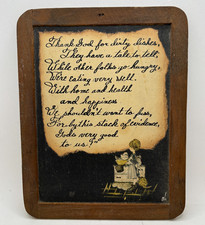 Thank God for dirty dishes,
They have a tale to tell;
While other folks go hungry,
We're eating very well.
With home and health
and happiness
We shouldn't want to fuss,
For by this stack of evidence,
God's very good
to us."